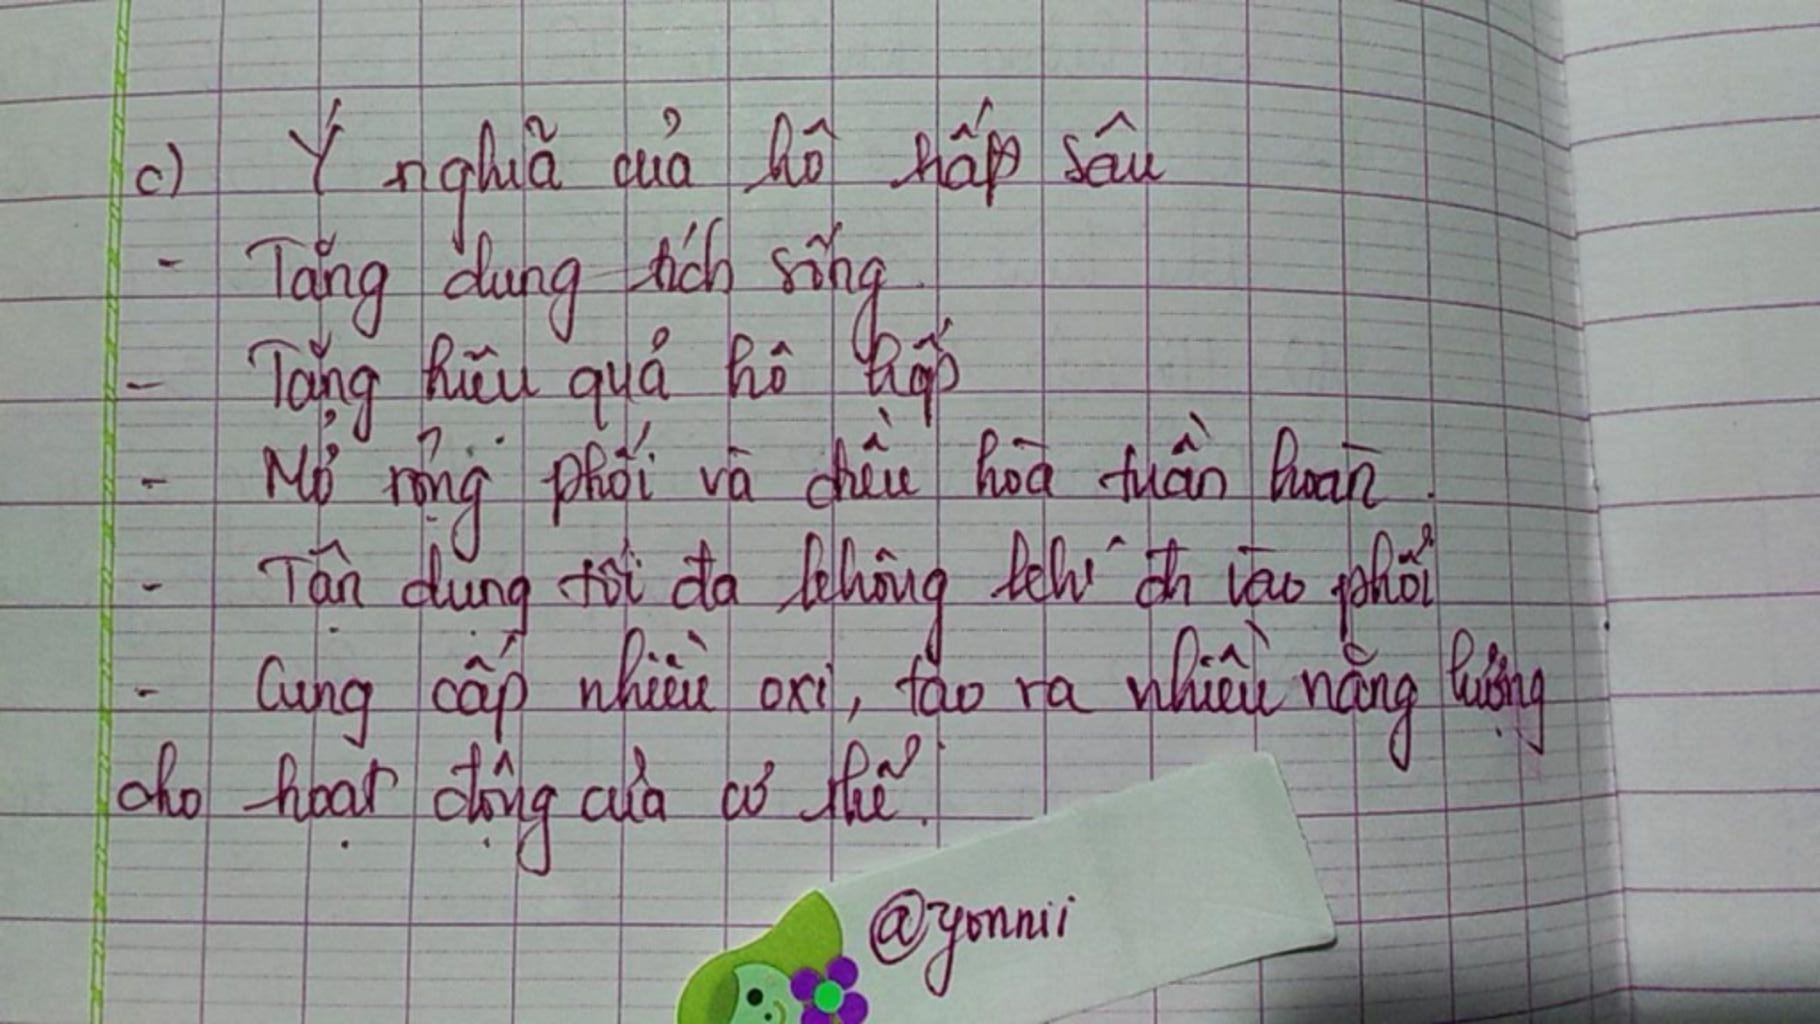 c) Ý nghĩa của hô hấp sâu
- Tăng dung tích sống.
- Tăng hiệu quả hô hấp
- Mở rộng phổi và điều hoà tuần hoàn.
- Tận dụng tối đa không khí đi vào phổi
- Cung cấp nhiều oxi, tạo ra nhiều năng lượng
cho hoạt động của cơ thể.
@yonnii